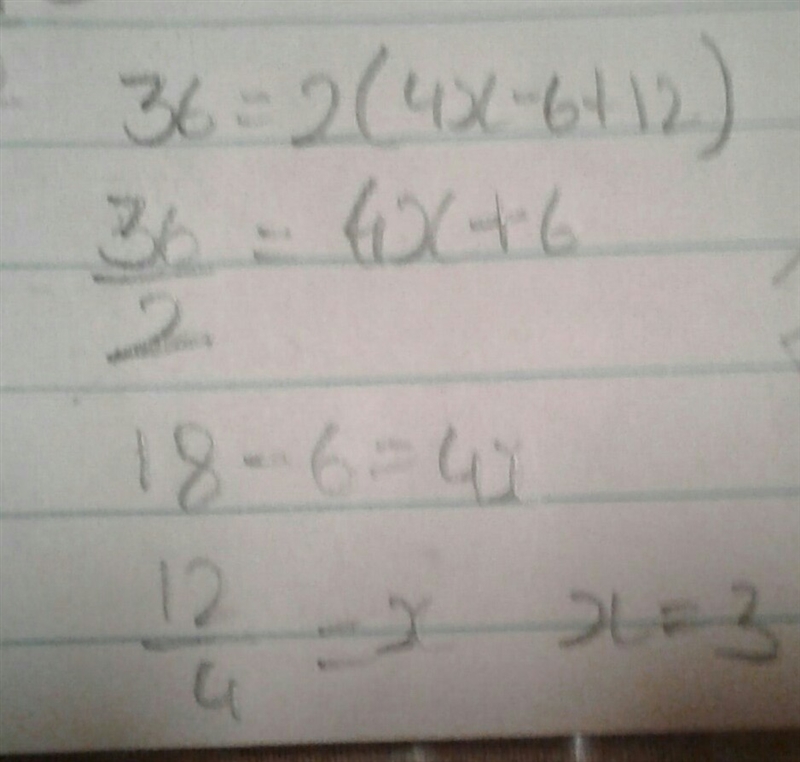 36 = 2(4x - 6 + 12)
36/2 = 4x + 6
18 - 6 = 4x
12/4 = x x = 3